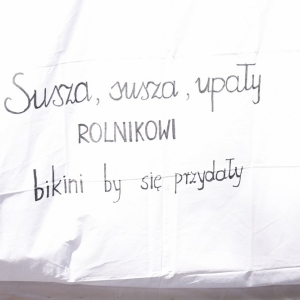 Susza, susza, upały
ROLNIKOWI
bikini by się przydały